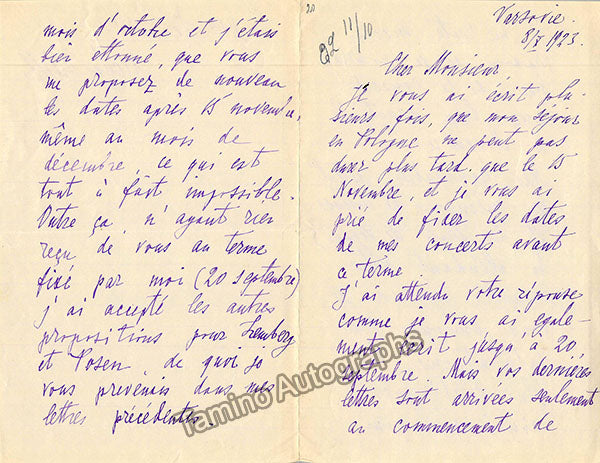 Varsovie.
8/X 1923.
Cher Monsieur,
Je vous ai écrit plu-
sieurs fois, que mon séjour
en Pologne ne peut pas
durer plus tard que le 15
Novembre, et je vous ai
prié de fixer les dates
de mes concerts avant
ce terme.
J'ai attendu votre réponse
comme je vous ai égale-
ment écrit jusqu'à 20
septembre. Mais vos dernières
lettres sont arrivées seulement
au commencement de
20
11/10
mois d'octobre et j'étais
bien étonné, que vous
me proposez de nouveau
les dates après 15 novembre,
même au mois de
décembre, ce qui est
tout à fait impossible.
Outre ça, n'ayant rien
reçu de vous au terme
fixé par moi (20 septembre)
j'ai accepté les autres
propositions pour Lemberg
et Posen, de quoi je
vous prevenais dans mes
lettres précédentes.
Tamino Autographs